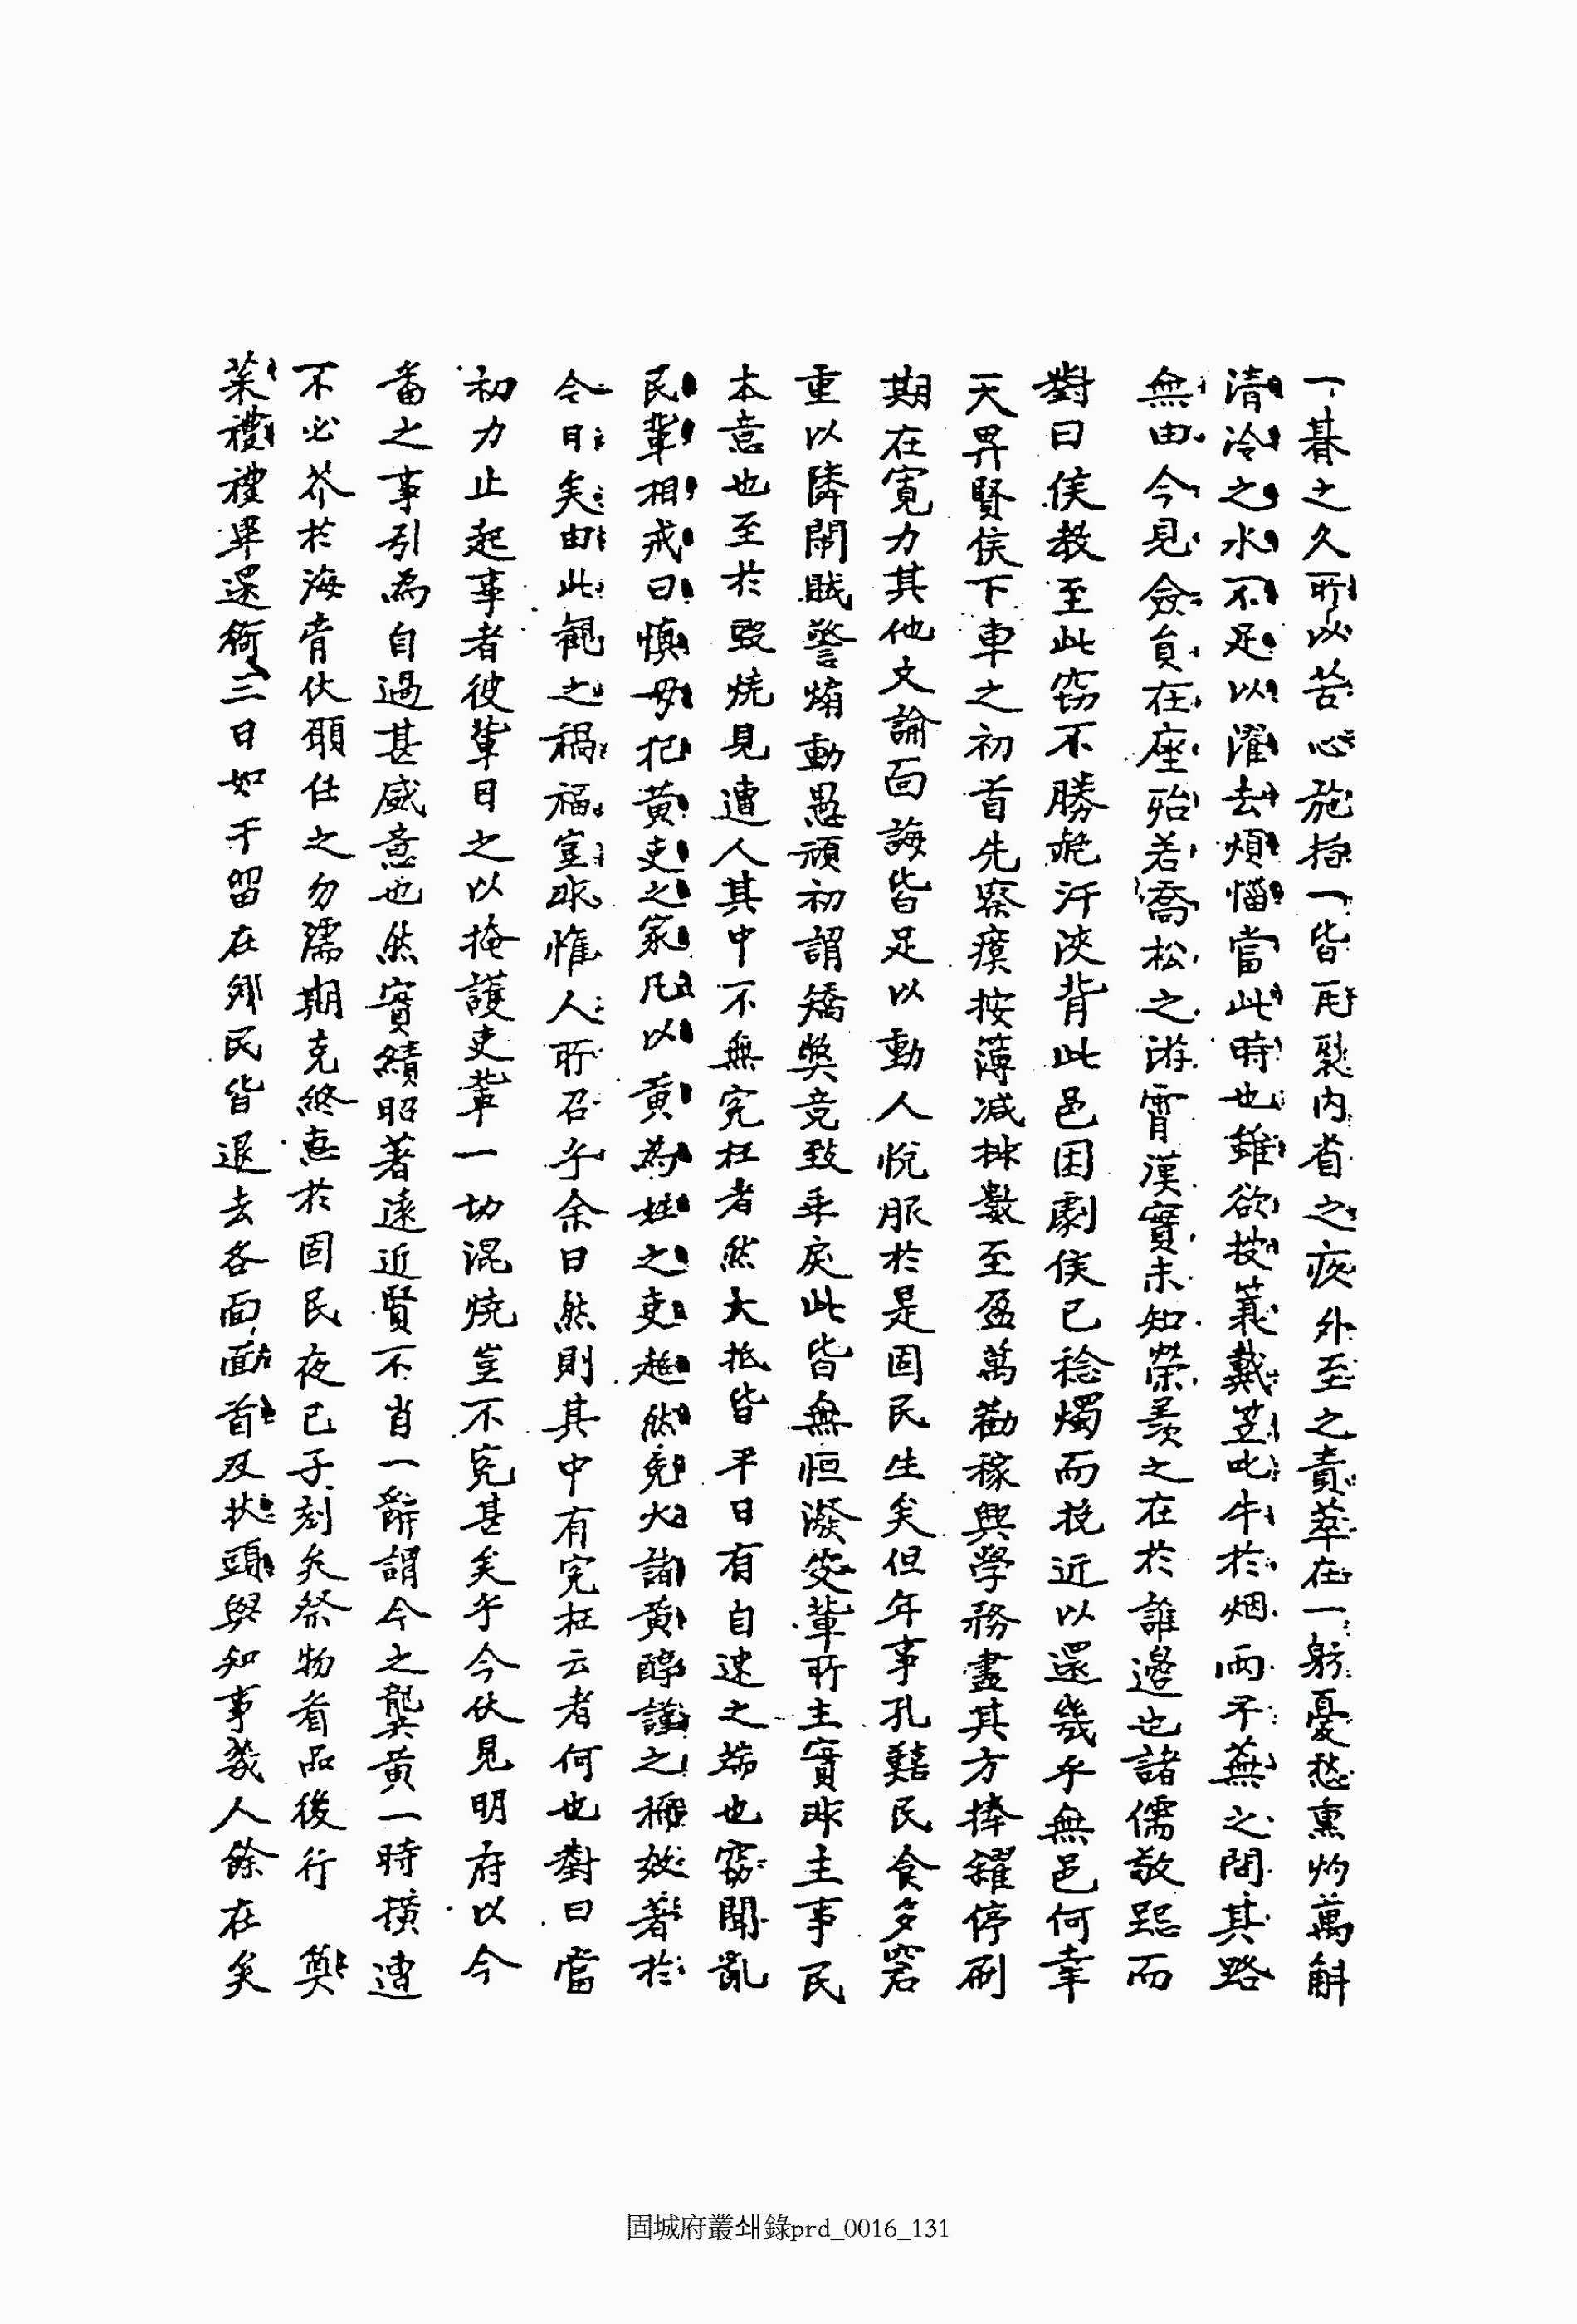 一朞之久所以苦心施措一皆瓦裂內省之疚外至之責萃在一躬憂愁熏灼萬斛
淸冷之水不足以濯去煩惱當此時也雖欲披簑戴笠叱牛於烟雨平蕪之間其路
無由今見僉員在座殆若喬松之游霄漢實未知榮羨之在於誰邊也諸儒敬跽而
對曰侯敎至此窃不勝赩汗浹背此邑困劇侯已稔燭而挽近以還幾乎無邑何幸
天畀賢侯下車之初首先察瘼按簿减排數至盈萬勸稼興學務盡其方捧糴停刷
期在寬力其他文論面誨皆足以動人悅服於是固民生矣但年事孔囏民食多窘
重以隣鬧賊警煽動愚頑初謂矯獘竟致乖戾此皆無恒潑茭輩所主實非主事民
本意也至於毀燒見遭人其中不無寃枉者然大抵皆平日有自速之端也窃聞亂
民輩相戒曰愼毋犯黃吏之家凡以黃爲姓之吏超然免火諸黃醇謹之穪效著於
今日矣由此觀之禍福豈非惟人所召乎余曰然則其中有寃枉云者何也對曰當
初力止起事者彼輩目之以掩護吏輩一切混燒豈不寃甚矣乎今伏見明府以今
番之事引爲自過甚盛意也然實績昭著遠近賢不肖一辭謂今之龔黃一時橫遭
不必芥於海胷伏願任之勿濡期克終惠於固民夜已子刻矣祭物看品後行 奠
菜禮禮畢還衙三日如干留在鄕民皆退去各面面首及狀頭與知事幾人餘在矣
固城府叢쇄錄prd_0016_131